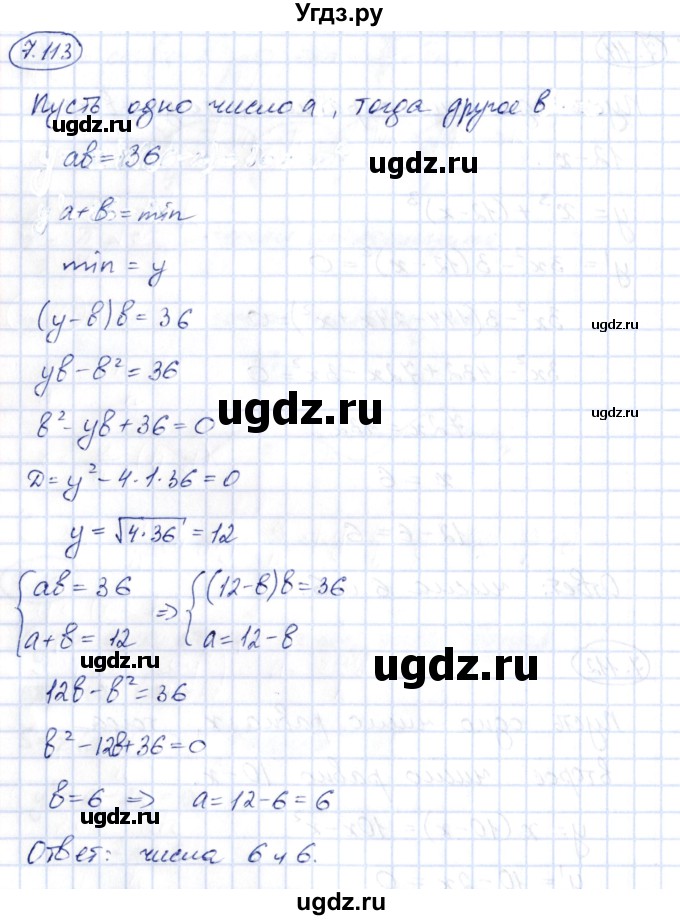 Угдз.ру
7.113
Пусть одно число a, тогда другое b.
ugdz.ru
ab = 36
ugdz.ru
a+b = min
min = y
(y-b)b = 36
ugdz.ru
yb - b² = 36
ugdz.ru
ugdz.ru
b² - yb + 36 = 0
D = y² - 4·1·36 = 0
y = √4·36 = 12
{ab = 36 ⇒ {(12-b)b = 36
a+b = 12 a = 12-b
ugdz.ru
ugdz.ru
12b - b² = 36
b² - 12b + 36 = 0
b = 6 ⇒ a = 12-6 = 6
Ответ: числа 6 и 6.
ugdz.ru
ugdz.ru